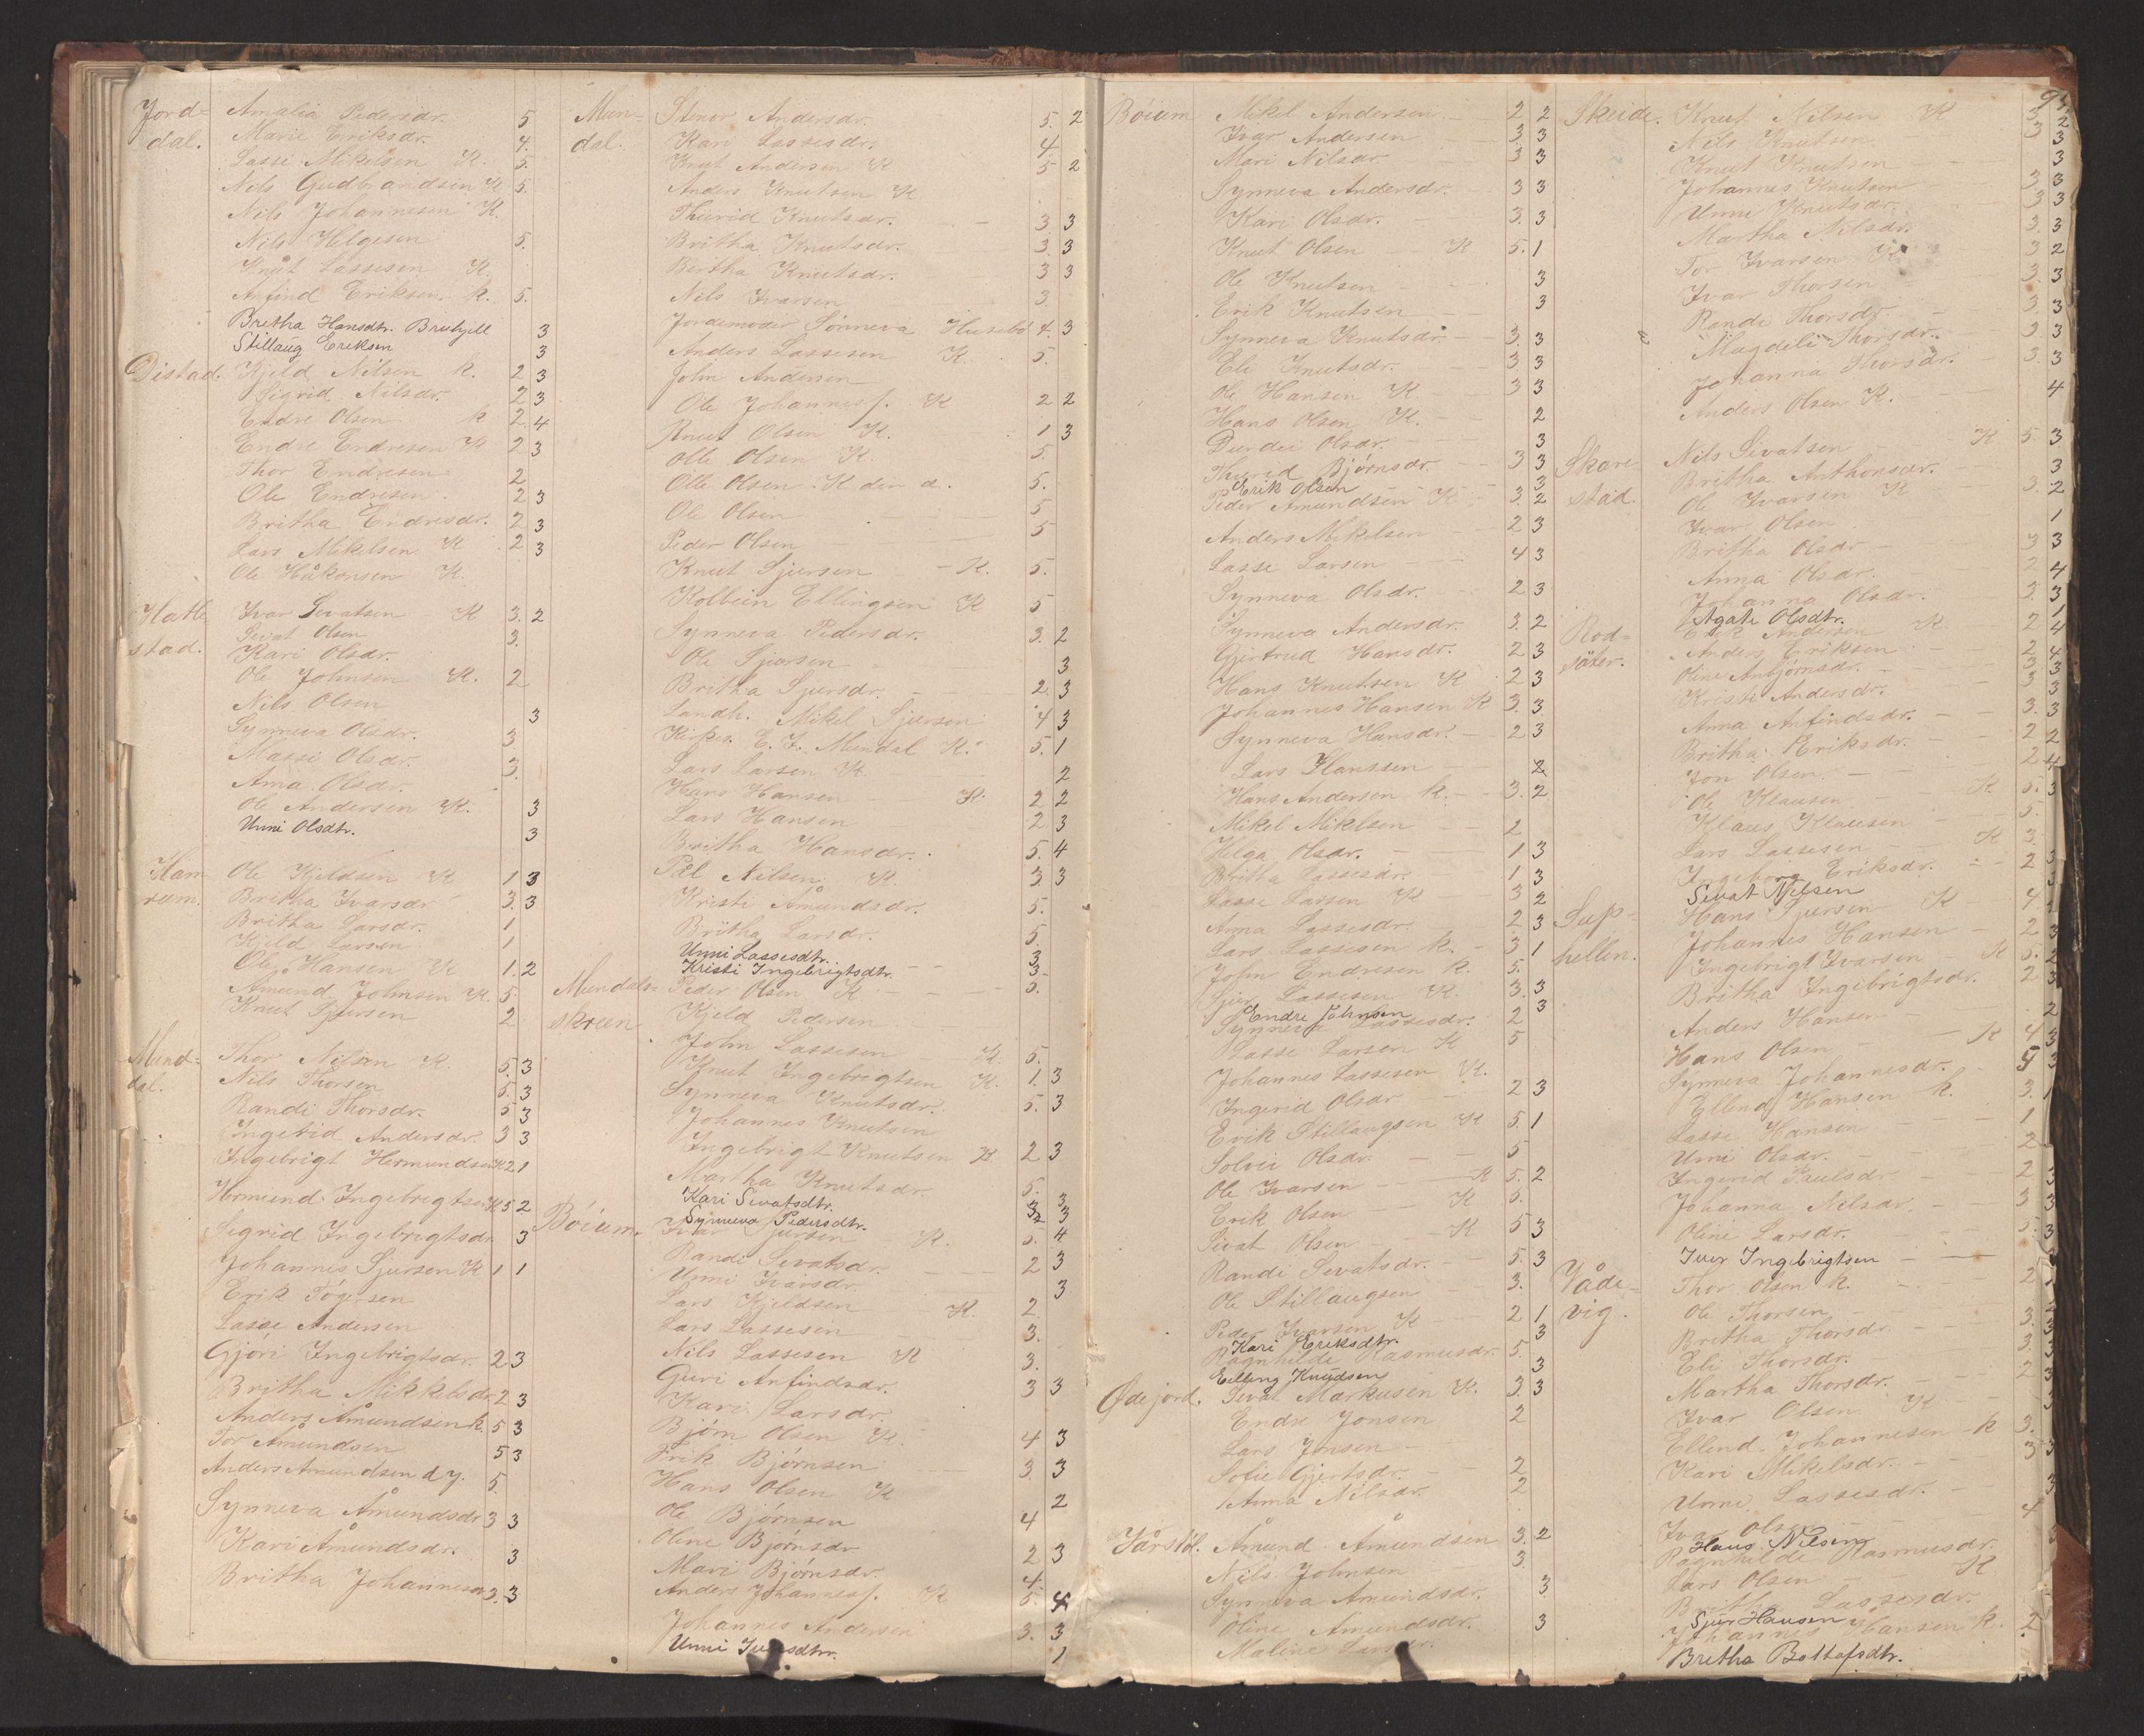 Jord= Amalia Pedersdr. 5
dal. Marie Eriksdr. 4.
Lasse Mikelsen K. 5.
Nils Gudbrandsen K 5.
Nils Johannesen K.
Nils Helgesen 5.
Knut Lassesen K.
Anfind Eriksen. k. 5.
Bretha Hansdtr. 3
Stillaug Eriksen 3
Distad. Kjeld Nilsen k. 2 3
Sigrid Nilsdr. 2 3
Endre Olsen k 2 4
Endre Endresen K 2 3
Thor Endresen 2
Ole Endresen. 2 3
Britha Endresdr. 2 3
Lars Mikelsen K 2 3
Ole Håkonsen K.
Hatle Ivar Sevatsen K 3. 2
stad. Sevat Olsen 3.
Kari Olsdr.
Ole Johnsen K. 2
Nils Olsen 3
Synneva Olsdr. 3
Massi Olsdr. 3.
Anna Olsdr.
Ole Andersen K. 3
Unni Olsdtr. 3
Ham Ole Kjeldsen K 1 3
rum. Britha Ivarsdr 3. 3
Britha Larsdr. 1
Kjeld Larsen 1
Ole Hansen K 1. 2
Åmund Johnsen K. 5
Knut Sjursen 2
Mund= Thor Nilsen K. 5. 3
dal. Nils Thorsen 5. 3
Randi Thorsdr. 5 3
Ingerid Andersdr. 3 3
Ingebrigt Hermundsen K 2 1
Hermund Ingebrigtsen K 5 2
Sigrid Ingebrigtsdr 3
Johannes Sjursen K 1 1
Erik Tøgersen
Lasse Andersen
Gjøri Ingebrigtsdr. 2 3
Britha Mikkelsdr. 2 3
Anders Åmundsen k. 5 3
Tor Åmundsen 5 3
Anders Åmundsen d y. 5.
Synneva Åmundsdr 3 3
Kari Åmundsdr. 3
Britha Johannesdr. 3. 3
Mun= Stenor Andersdr. 5. 2
dal. Kari Lassesdr. 4
Knut Andersen K 5 2
Anders Knutsen K
Thurid Knutsdr. 3. 3
Britha Knutsdr. 3. 3
Bertha Knutsdr. 3 3
Nils Ivarsen 3.
Jordemoder Sønneva Husebø 4. 3
Anders Lassesen K. 5.
John Andersen
Ole Johannesf. K 2 2
Knut Olsen K. 1 3
Olle Olsen K. 5.
Olle Olsen K den æ. 5.
Ole Olsen 5
Peder Olsen 5
Knut Sjursen K. 5.
Kolbein Ellingsen K 5
Synneva Pedersdr. 3. 2
Ole Sjursen 3
Britha Sjursdr. 2. 3
Landh. Mikel Sjursen 4 3
Kirkes. E. J. Mundal K. 5. 1
Lars Larsen K. 2
Hans Hansen K. 2 2
Lars Hansen 2 3
Britha Hansdr. 5. 4
Pål Nilsen K. 3 3
Kristi Åmundsdr. 5.
Britha Larsdr. 5.
Unni Lassesdtr. 3
Kristi Ingebrigtsdtr. 3
Mundals= Peder Olsen K 5.
skreen Kjeld Pedersen
John Lassesen K. 5.
Knut Ingebrigtsen K. 1. 3
Synneva Knutsdr. 5. 3
Johannes Knutsen
Ingebrigt Knutsen K 2 3
Martha Knutsdr. 5.
Kari Sevatsdtr. 3
Synneva Pedersdtr. 3
Bøium. Ivar Sjursen K. 5. 4
Randi Sevatsdr. 2 3
Unni Ivarsdr. 3
Lars Kjeldsen K. 2.
Lars Lassesen 3.
Nils Lassesen K 3.
Guri Anfindsdr. 3 3
Kari Larsdr.
Bjørn Olsen K. 4 3
Erik Bjørnsen 3. 3
Hans Olsen K 2
Ole Bjørnsen 4
Oline Bjørnsdr 2 3
Mari Bjørnsdr. 4
Anders Johannesf. K 5. 4
Johannes Andersen 3. 3
Unni 1
Bøium Mikel Andersen 2 2
Ivar Andersen 3. 3
Mari Nilsdr 3 3
Synneva Andersdr. 3 3
Kari Olsdr. 3. 3
Knut Olsen K 5. 1
Ole Knutsen 3
Erik Knutsen 3
Synneva Knutsdr. 3. 3
Eli Knutsdr. 3 3
Ole Hansen K 3 3
Hans Olsen K. 2
Durdei Olsdr. 3
Thurid Bjørnsdr. 3 3
Erik Olsen 3
Peder Amundsen K 3. 2
Anders Mikelsen 2 3
Lasse Larsen 4 3
Synneva Olsdr. 2 3
Synneva Andersdr. 3 2
Gjertrud Hansdr. 2 3
Hans Knutsen K 2 3
Johannes Hansen K 3. 3
Synneva Hansdr. 2 3
Lars Hanssen 2
Hans Andersen k. 3. 2
Mikel Mikelsen 2
Helga Olsdr. 1 3
Britha Lassesdr. 1 3
Lasse Larsen K 3 2
Anna Lassesdr. 2 3
Lars Lassesen k. 3 1
John Endresen k. 5.
Sjur Lassesen K. 3. 3
Endre Johnsen 3
Synneva Lassesdr. 2
Lasse Larsen K 5
Johannes Lassesen K.
Ingerid Olsdr 2 3
Erik Stillaugsen K 5. 1
Solvei Olsdr. 5
Ole Ivarsen K 5. 2
Erik Olsen K 5.
Sivat Olsen K 5 3
Randi Sevatsdr. 5. 3
Ole Stillaugsen 3.
Peder Ivarsen K 2 1
Kari Eriksdtr. 3
Ragnhilde Rasmusdr. 5.
Elling Knudsen 3
Ødejord. Sevat Markusen K. 3. 3
Endre Jonsen 2
Lars Jonsen
Sofie Gjertsdr. 2
Anna Nilsdr. 2
Jårstøl. Åmund Åmundsen 3. 2
Nils Johnsen 3.
Synneva Amundsdr. 3
Oline Amundsdr. 3
Maline
94.
Skeide. Knut Nilsen K 3. 2
Nils Knutsen 3 3
Knut Knutsen 3
Johannes Knutsen 3. 3
Unni Knutsdr. 3 3
Martha Nilsdr. 3. 3
Tor Ivarsen K 3 2
Ivar Thorsen 3. 3
Randi Thorsdr 3. 3
Magdeli Thorsdr. 3 3
Johanna Thorsdr. 3. 3
Anders Olsen K. 4
Skare= Nils Sevatsen K 5. 3
stad. Britha Anthonsdr. 3
Ole Ivarsen K 3. 2
Ivar Olsen 1
Britha Olsdr 3 3
Anna Olsdr. 2 4
Johanna Olsdr. 3. 3
Agate Olsdtr. 1
Rod= Erik Andersen K. 2 4
säter. Anders Eriksen 2 4
Oline Anbjørnsdr. 3 3
Kristi Andersdr. 3 3
Anna Anfindsdr. 3. 3
Britha Eriksdr. 2 2
Jon Olsen 2 4
Ole Klausen K 5. 3
Klaus Klausen 5.
Lars Lassesen K 3.
Ingeborg Eriksdr. 2 3
Sivat Nilsen
Sup= Hans Sjursen K 4
hellen. Johannes Hansen 2
Ingebrigt Ivarsen K 5.
Britha Ingebrigtsdr. 2
Anders Hansen 2
Hans Olsen K 4 3
Synneva Johannesdr. 5 3
Ellend Hansen k. 3. 1
Lasse Hansen 1
Unni Olsdr. 2
Ingerid Paulsdr. 2
Johanna Nilsdr. 3
Oline Larsdr. 5. 3
Iver Ingebrigtsen
Jåde= Thor Olsen k. 2
vig. Ole Thorsen
Britha Thorsdr. 3.
Eli Thorsdr. 3.
Martha Thorsdr. 2
Ivar Olsen K
Ellend Johannesen k 3.
Kari Mikelsdr. 3
Unni Lassesdr.
Ivar Olsen 4
Hans Nilsen
Ragnhilde Rasmusdr.
Lars Olsen K
Lassesdr.
Sjur Hansen
Johannes Hansen k. 2
Bretha Bottolfsdtr.